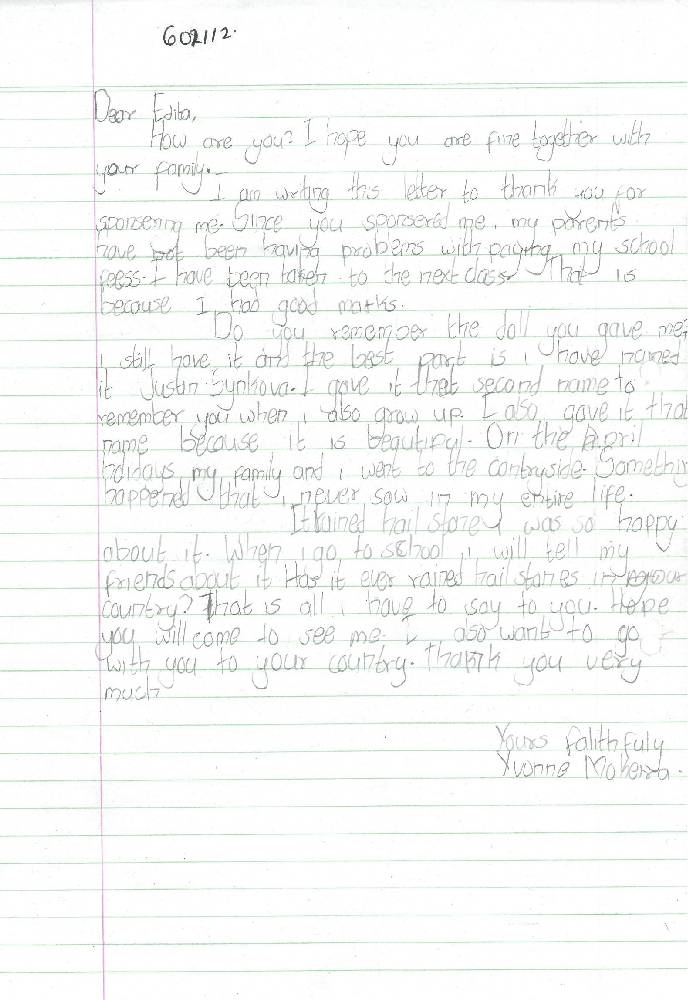 602112.
Dear Edita,
How are you? I hope you are fine together with
your family.
I am writing this letter to thank you for
sponsering me. Since you sponsered me, my parents
have not been having problems with paying my school
feess. I have been taken to the next class. That is
because I had good marks.
Do you remember the doll you gave me?
i still have it and the best part is i have named
it Justin Synkova. I gave it that second name to
remember you when i also grow up. I also gave it that
name because it is beautiful. On the April
holidays my family and i went to the contryside. Somethin
happened that i never saw in my entire life.
It rained hail stones I was so happy
about it. When i go to school i will tell my
friends about it Has it ever rained hail stones in your
country? That is all i have to say to you. Hope
you will come to see me. I also want to go
with you to your country. thank you very
much
Yours falithfuly
Yvonne